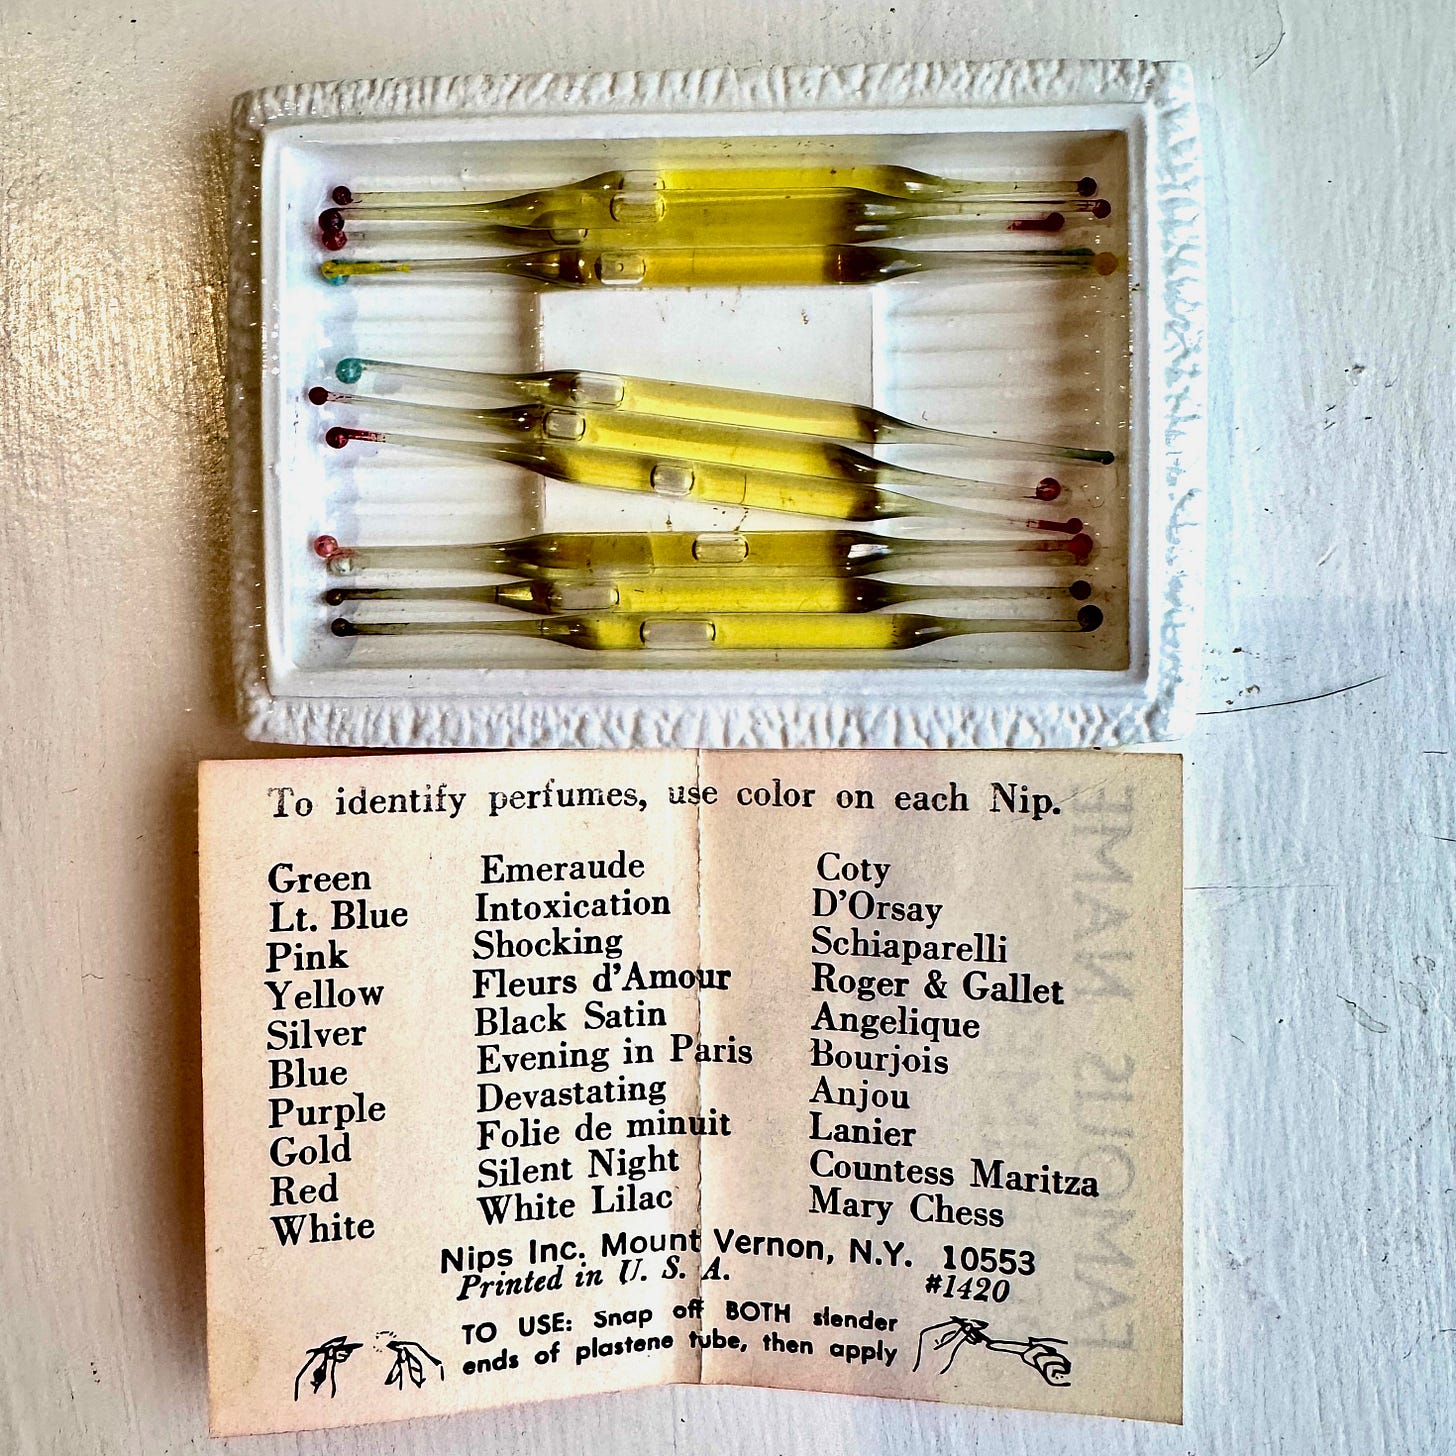 To identify perfumes, use color on each Nip.
Green Emeraude Coty
Lt. Blue Intoxication D'Orsay
Pink Shocking Schiaparelli
Yellow Fleurs d'Amour Roger & Gallet
Silver Black Satin Angelique
Blue Evening in Paris Bourjois
Purple Devastating Anjou
Gold Folie de minuit Lanier
Red Silent Night Countess Maritza
White White Lilac Mary Chess
Nips Inc. Mount Vernon, N.Y. 10553
Printed in U. S. A. #1420
TO USE: Snap off BOTH slender
ends of plastene tube, then apply
FAMOUS NAME